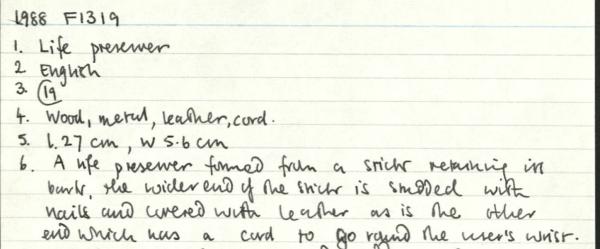 1988 F1319
1. Life preserver
2 English
3. 19
4. Wood, metal, leather, cord.
5. L.27 cm, W 5.6 cm
6. A life preserver formed from a stick retaining its
bark, the wider end of the stick is studded with
nails and covered with leather as is the other
end which has a cord to go round the user's wrist.